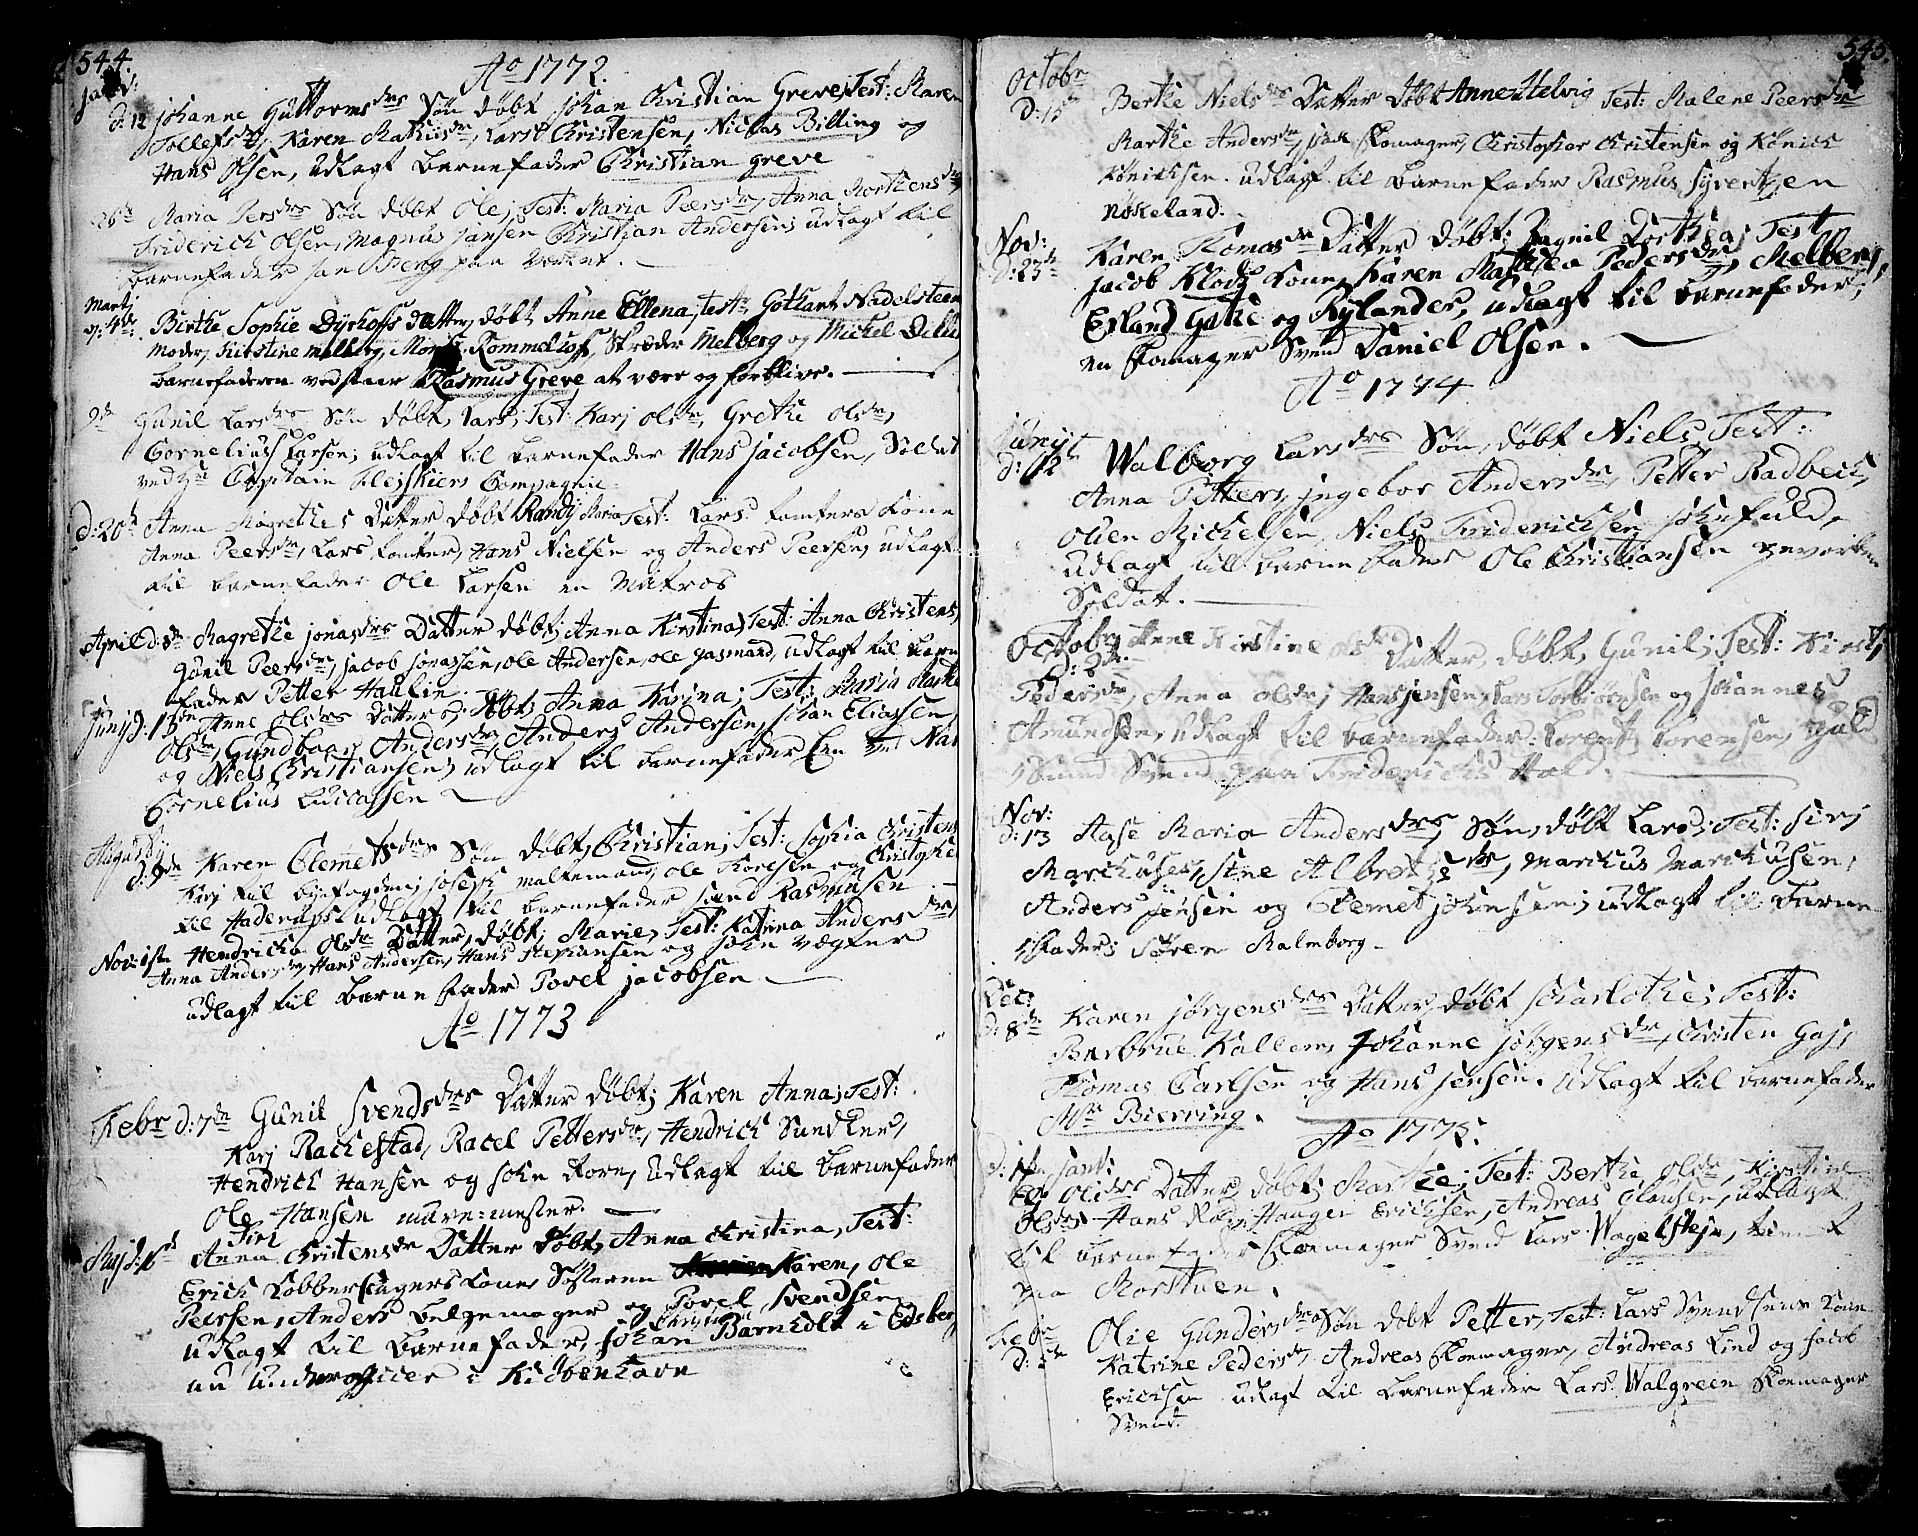 544.
Ao 1772.
Janr:
d: 12 Johanne Guttorms drs Søn døbt Johan Christian Greve, Test: Maren
Tollefsdr, Karen Mathisdr, Lars Christensen, Niclas Bilting og
Hans Olsen, udlagt barnefader Christian Greve
26de Maria Pers drs Søn døbt Ole, Test: Maria Peersdr, Anna Mortensdr
Friderich Olsen, Magnus Jansen Christian Andersen, udlagt til
barnefader Jan Berg paa Verket.
Martj
d: 4de Birthe Sophie Dyrhofs datter, døbt Anne Ellena, Test: Gothart Nadelsteen
Moder, Kirstine Melberg, Rommelhof, Skræder Melberg og Michel
barnefaderen vedstaar Rasmus Greve at være og forblive.
9de Gunil Lars drs Søn døbt Lars, Test: Karj Olsdr, Grethe Olsdr,
Cornelius Larsen; udlagt til barnefader Hans Jacobsen, Soldat
ved Capitain Flejschiers Compagnie
d: 20de Anna Magrethes Datter døbt Randj Maria Test: Lars Kone
Anna Peersdr, Lars Hans Nielsen og Anders Peersen, udlagt
til barnefader Ole Larsen en Matros
April d: 8de Magrethe Jonas drs Datter døbt, Anna Kirstina, Test: Anna Christens,
Gunil Peersdr, Jacob Jonassen, Ole Andersen, Ole Gasmand, udlagt til barne
fader Petter Haulin
Junij d: 13 Anne Ols drs Datter døbt, Anna Karina; Test: Maria
Olsdr, Gundbaar Andersdr, Anders Andersen, Johan Eliassen
og Niels Christiansen; udlagt til barnefader en
Cornelius Lucassen
Augustj
d: 9de Karen Clemets drs Søn døbt, Christian, Test: Sophia Christens
Kirj til byefogden; Joseph Maltemand, Ole og Christopher
til Haderups udlagt til barnefader Svend Rasmusen
Nov: 1ste Hendricka Olsdr Datter, døbt; Marie, Test: Katrina Andersdr,
Anna Andersdr, Hans Andersen, Hans Stephansen og John Vægter
udlagt til barne fader Povel Jacobsen
Ao 1773
Febr d: 7de Gunil Svends drs Datter døbt; Karen Anna; Test:
Karj Rachestad, Racel Pettersdr, Hendrich Sundker,
Hendrich Hansen og John udlagt til barnefader
Ole Hansen mure:mester.
Maj d: 16d Anna Christensdr Datter døbt, Anna Christina, Test:
Erich Kobberslagers Kone, Søsteren Karen, Ole
Peersen, Anders belgemager og Povel Svendsen
udlagt til barnefader, Johan Christian Barnholt i Edsberg
nu underofficer i Kiøbenhavn
545.
Octobr
D: 15de Berthe Niels drs Datter døbt Anne Helvig Test: Malene Peersdr
Marthe Andersdr, Skomager, Christopher Christensen og Könich
Könichsen. udlagt til barnefader Rasmus Syrentzen
Nökeland.
Nov:
D: 25de Karen Thomasdr Datter døbt; Ragnil Dorthea, Test
Jacob Klods Kone, Karen Mathea Pedersdr, Melberg,
Erland Gothe og Rylander, udlagt til barnefader,
en Skomager Svend Daniel Olsen.
Ao 1774
Junij
d: 12 Walborg Lars drs Søn, døbt Niels, Test:
Anna Petters, Jngebor Andersdr, Petter Radbech,
Olien Michelsen, Niels Friderichsen Johnsfald,
udlagt til barnefader Ole Christiansen gevorben
Soldat.
Octobr
D: 2de Anne Kirstine Olsdr Datter, døbt, Gunil; Test: Kirsti
Pedersdr, Anna Olsdr, Hans Jensen, Lars Torbiørnsen og Johannes
Amundsen, udlagt til barnefader: Lorents Lorensen, Guld
smed Svend paa Friderichs Hald.
Nov:
d: 13 Aase Maria Anders drs Søn, døbt Lars; Test: Siri
Marchuses, Sine Albretzsdr, Marchus Marchusen,
Anders Jensen og Clemet Johnsen; udlagt til barne
fader; Søren Malmborg.
Dec:
d: 8de Karen Jørgens drs Datter, døbt Scharlothe; Test:
Barbrue Kallem, Johanne Jörgensdr, Christen Gaj,
Thomas Carlsen og Hans Jensen. Udlagt til barnefader
Mr Bierring.
Ao 1775.
d: 1ste Janr:
Olidrs Datter døbt; Marthe; Test: Berthe Olsdr, Kirstine
Olsdr Hans Haagen Erichsen, Andreas Clausen, udlagt
til barnefader Skomager Svend Lars Wagelsteje,
paa Morstuen.
Febr
d: Olie Gundersdrs Søn døbt Petter, Test: Lars Svendsens Kone
Katrine Pedersdr, Andreas Skomager, Andreas Lind og Jacob
Erichsen udlagt til barnefader Lars Walgreen Skomager
Svend.